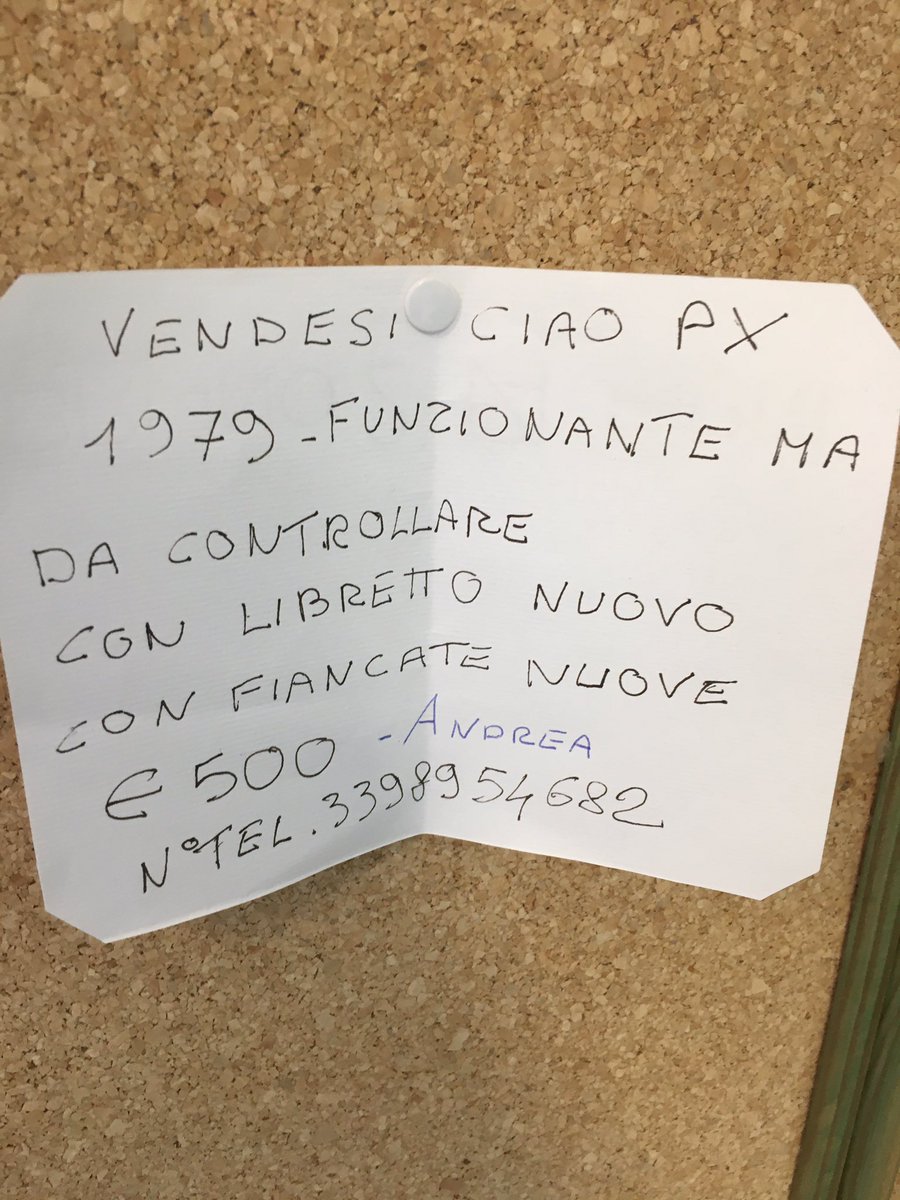 VENDESI CIAO PX
1979 - FUNZIONANTE MA
DA CONTROLLARE
CON LIBRETTO NUOVO
CON FIANCATE NUOVE
€ 500 - ANDREA
N° TEL. 3398954682